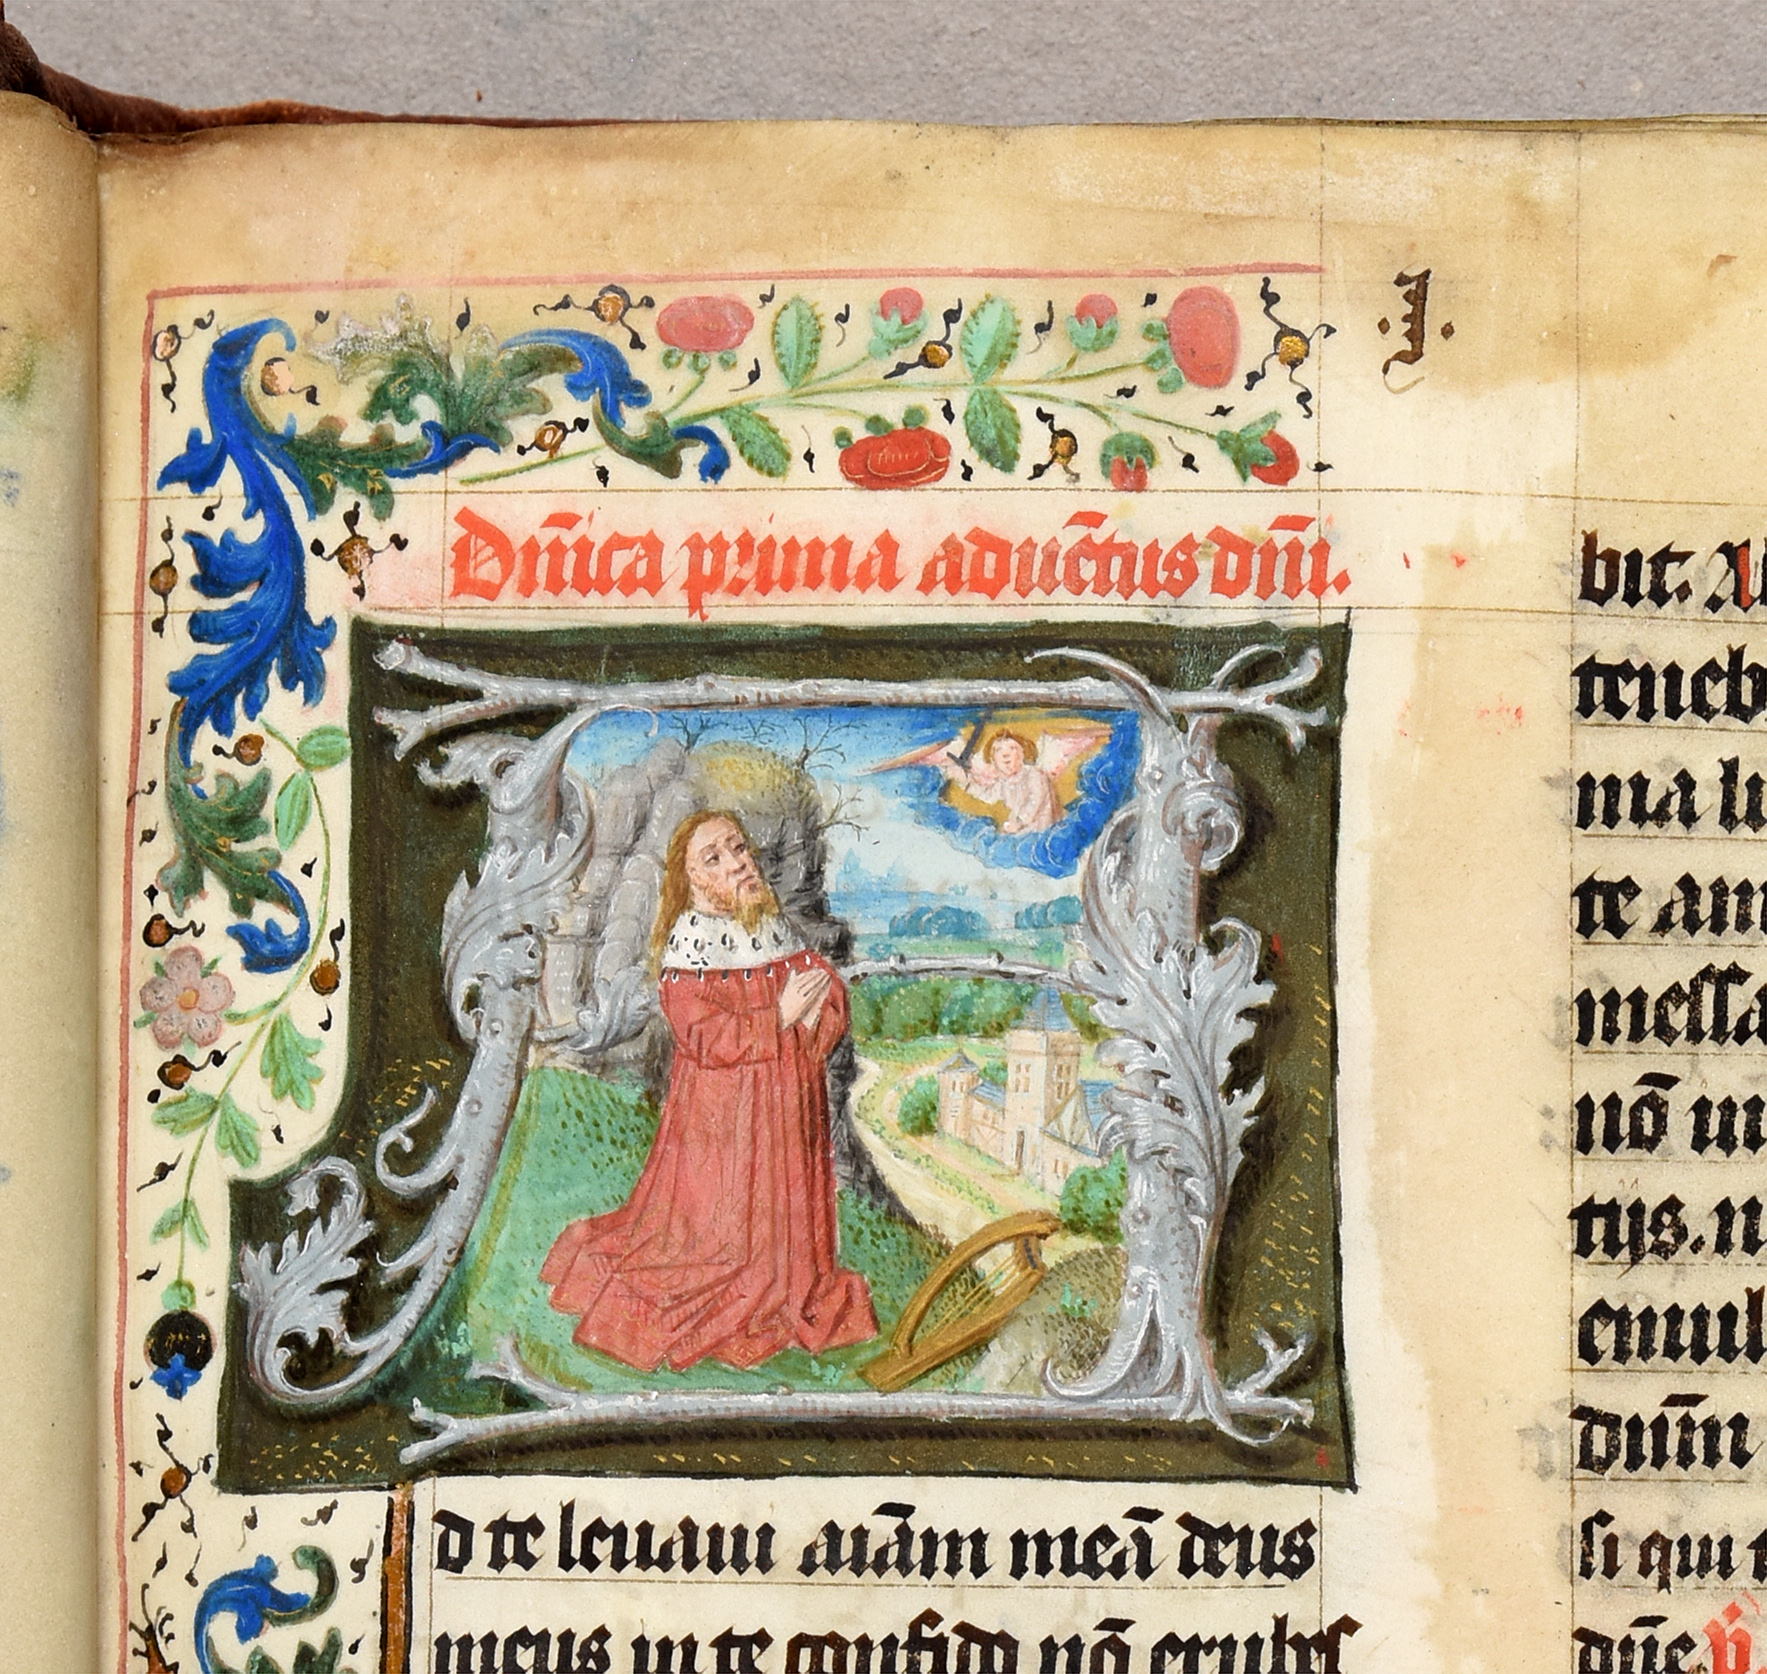 .j.
Dn̄ica prima aduētus dn̄i.
A
d te leuaui aīam meā deus
meus in te confido nō erubes
bit. Al
teneb
nia lu
te am
messa
nō in
tijs. n
emul
dum̄
si qui
dn̄e